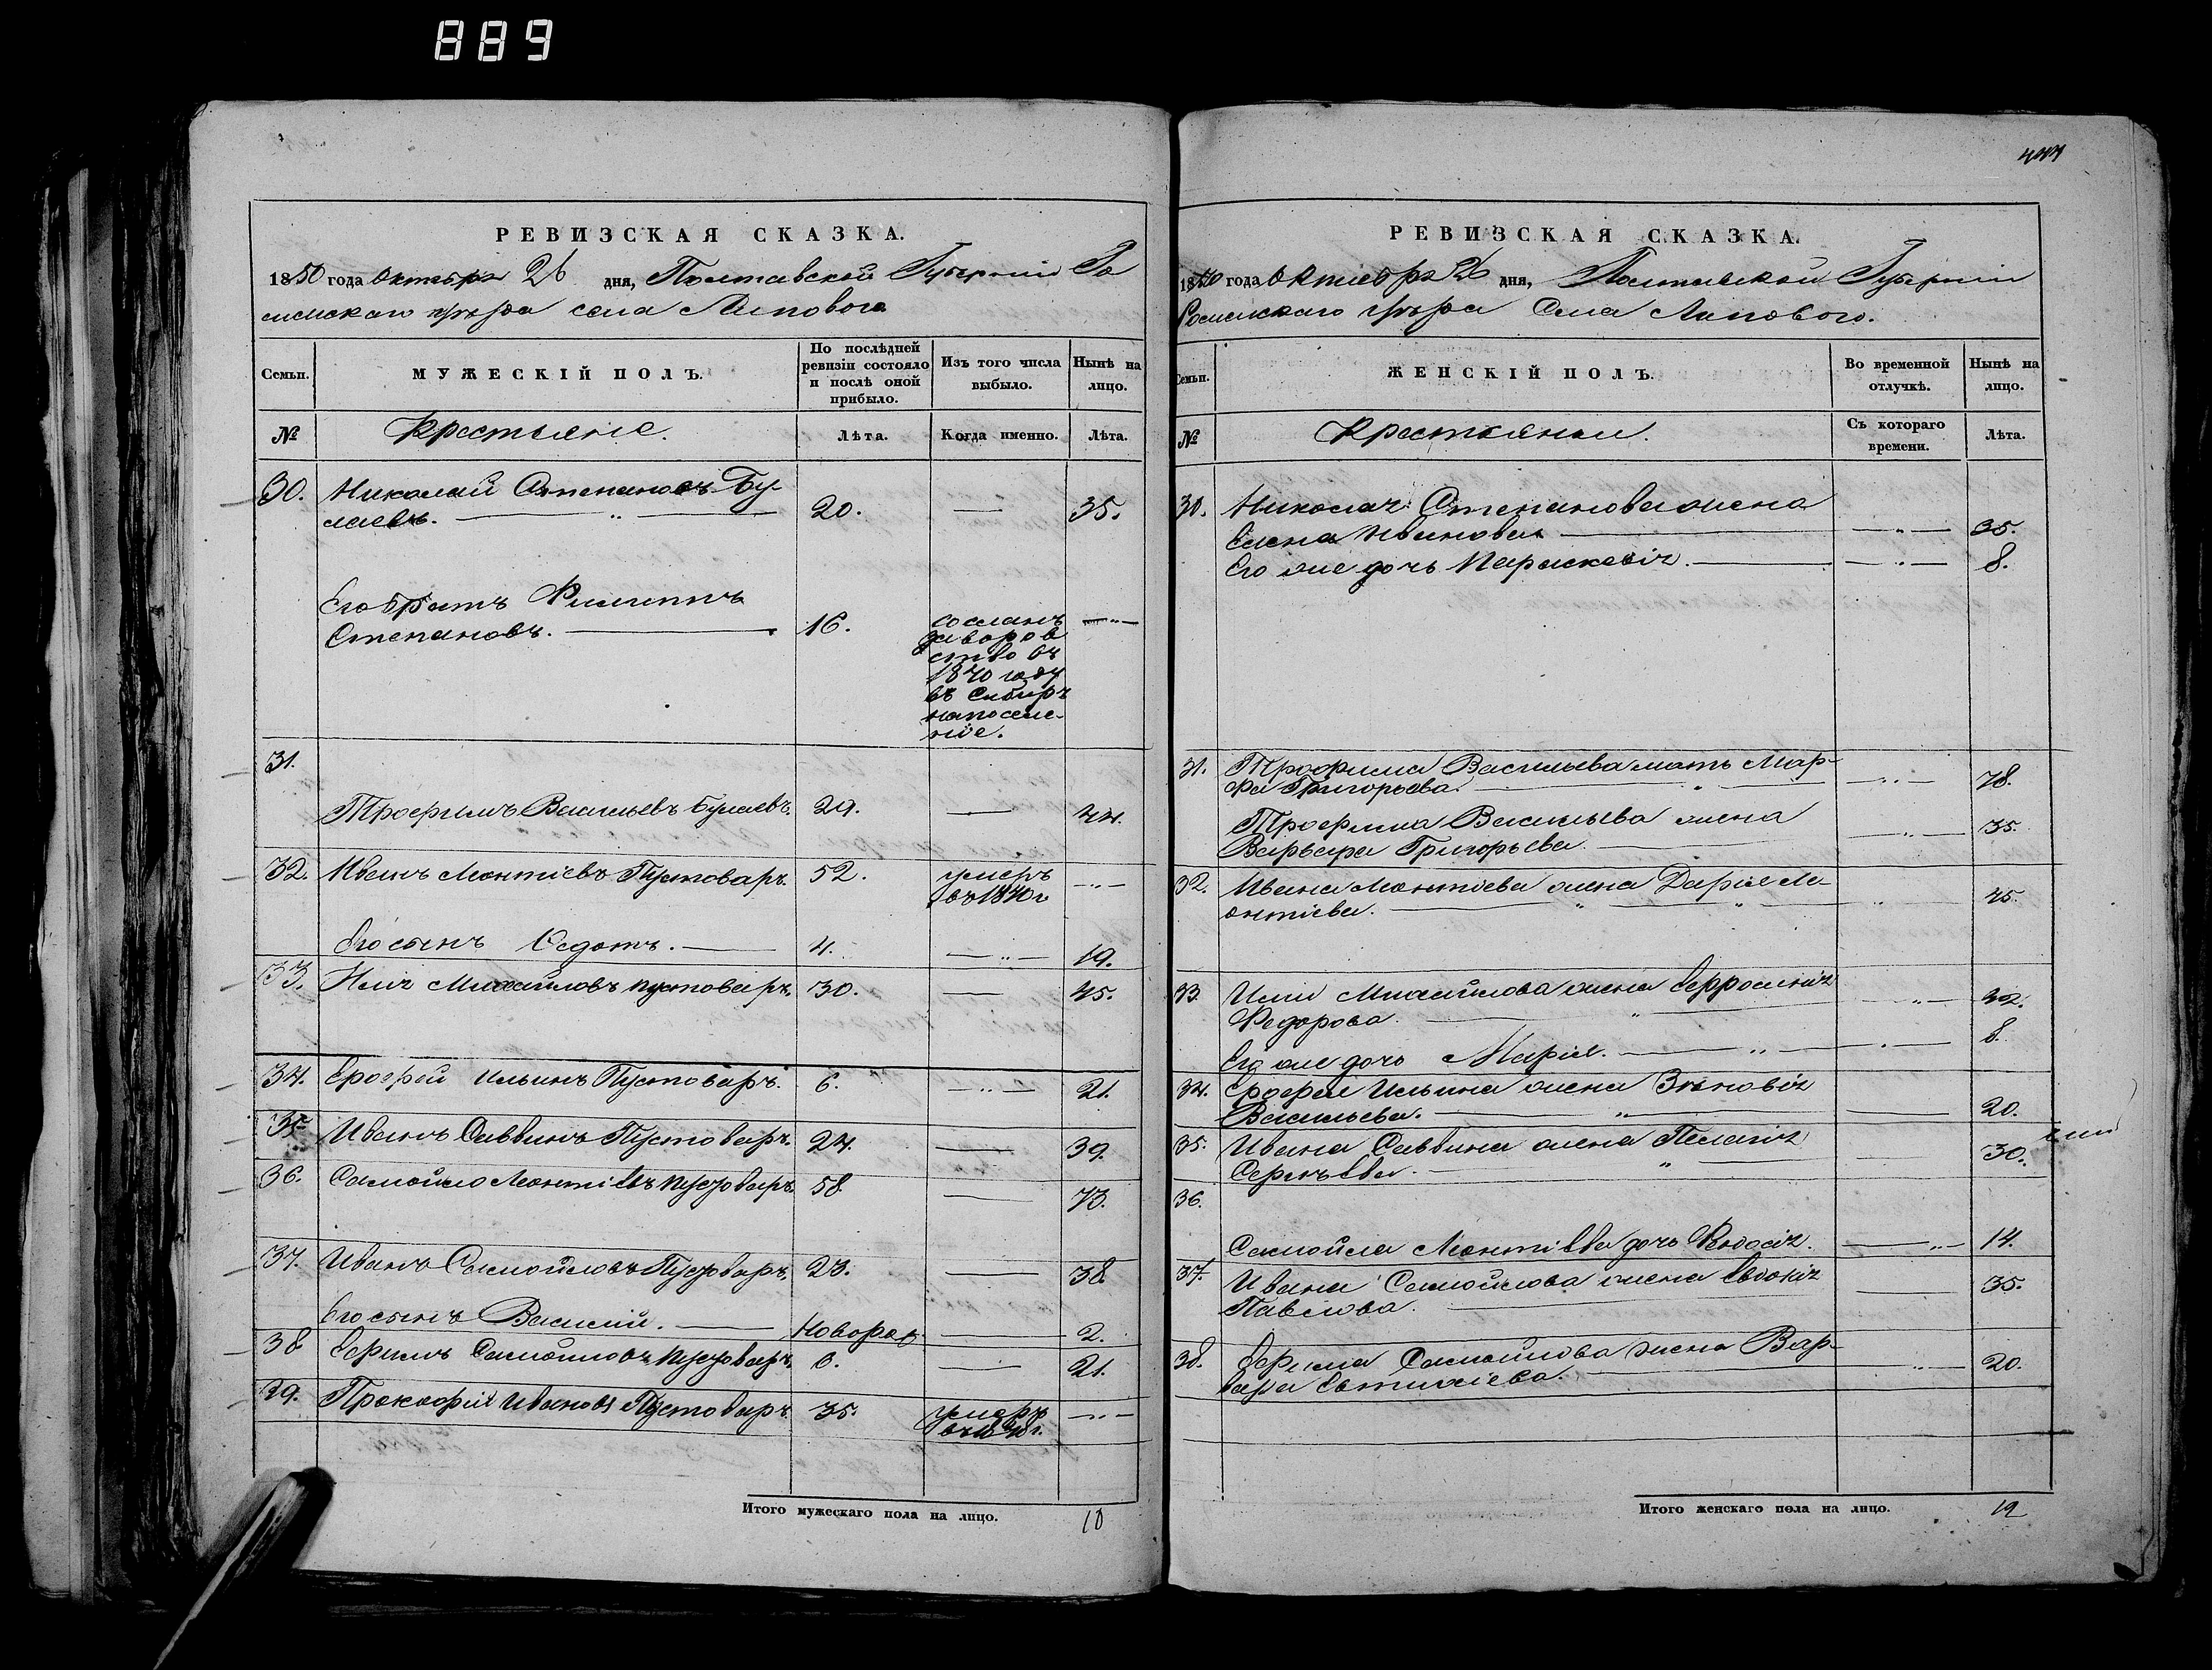 889
РЕВИЗСКАЯ СКАЗКА.
1850 года Октября 26 дня, Полтавской Губерніи Ро
менскаго уѣзда села Липоваго
Семьи.
МУЖЕСКІЙ ПОЛЪ.
По послѣдней
ревизіи состояло
и послѣ оной
прибыло.
Изъ того числа
выбыло.
Нынѣ на
лицо.
№
Крестьяне.
Лѣта.
Когда именно.
Лѣта.
30. Николай Степановъ Бу-
лаевъ. 20. 35.
Его братъ Филиппъ
Степановъ. 16.
сосланъ
за воров
ство въ
1840 году
въ Сибирь
на поселе-
ніе.
31.
Трофимъ Васильевъ Булаевъ. 29. 44.
32. Иванъ Леонтіевъ Пустоваръ. 52. умеръ
въ 1840 г.
Его сынъ Федотъ. 4. 19.
33. Илья Михайловъ Пустоваръ. 30. 45.
34. Ерофей Ильинъ Пустоваръ. 6. 21.
35. Иванъ Саввинъ Пустоваръ. 24. 39.
36. Самойло Леонтіевъ Пустоваръ. 58. 73.
37. Иванъ Самойловъ Пустоваръ. 23. 38.
Его сынъ Василій. Новорож 2.
38. Ефимъ Самойловъ Пустоваръ. 6. 21.
39. Прокофій Ивановъ Пустоваръ. 35. умеръ
Итого мужескаго пола на лицо. 10
РЕВИЗСКАЯ СКАЗКА.
1850 года Октября 26 дня, Полтавской Губерніи
Роменскаго уѣзда Села Липоваго.
Семьи.
ЖЕНСКІЙ ПОЛЪ.
Во временной
отлучкѣ.
Нынѣ на
лицо.
№
Крестьянки.
Съ котораго
времени.
Лѣта.
30. Николая Степанова жена
Елена Иванова 35.
Его же дочь Параскевія. 8.
31. Трофима Васильева мать Мар-
фа Григорьева. 78.
Трофима Васильева жена
Варвара Григорьева. 35.
32. Ивана Леонтіева жена Дарія Ле-
онтіева. 45.
33. Ильи Михайлова жена Ефросинія
Федорова.
Его же дочь Марія. 8.
34. Ерофея Ильина жена Зиновія
Васильева. 20.
35. Ивана Саввина жена Пелагія
Сергѣева. 30.
36.
Самойла Леонтіева дочь Феодосія. 14.
37. Ивана Самойлова жена Евдокія
Павлова. 35.
38. Ефима Самойлова жена Вар-
вара Евтихіева. 20.
Итого женскаго пола на лицо. 12